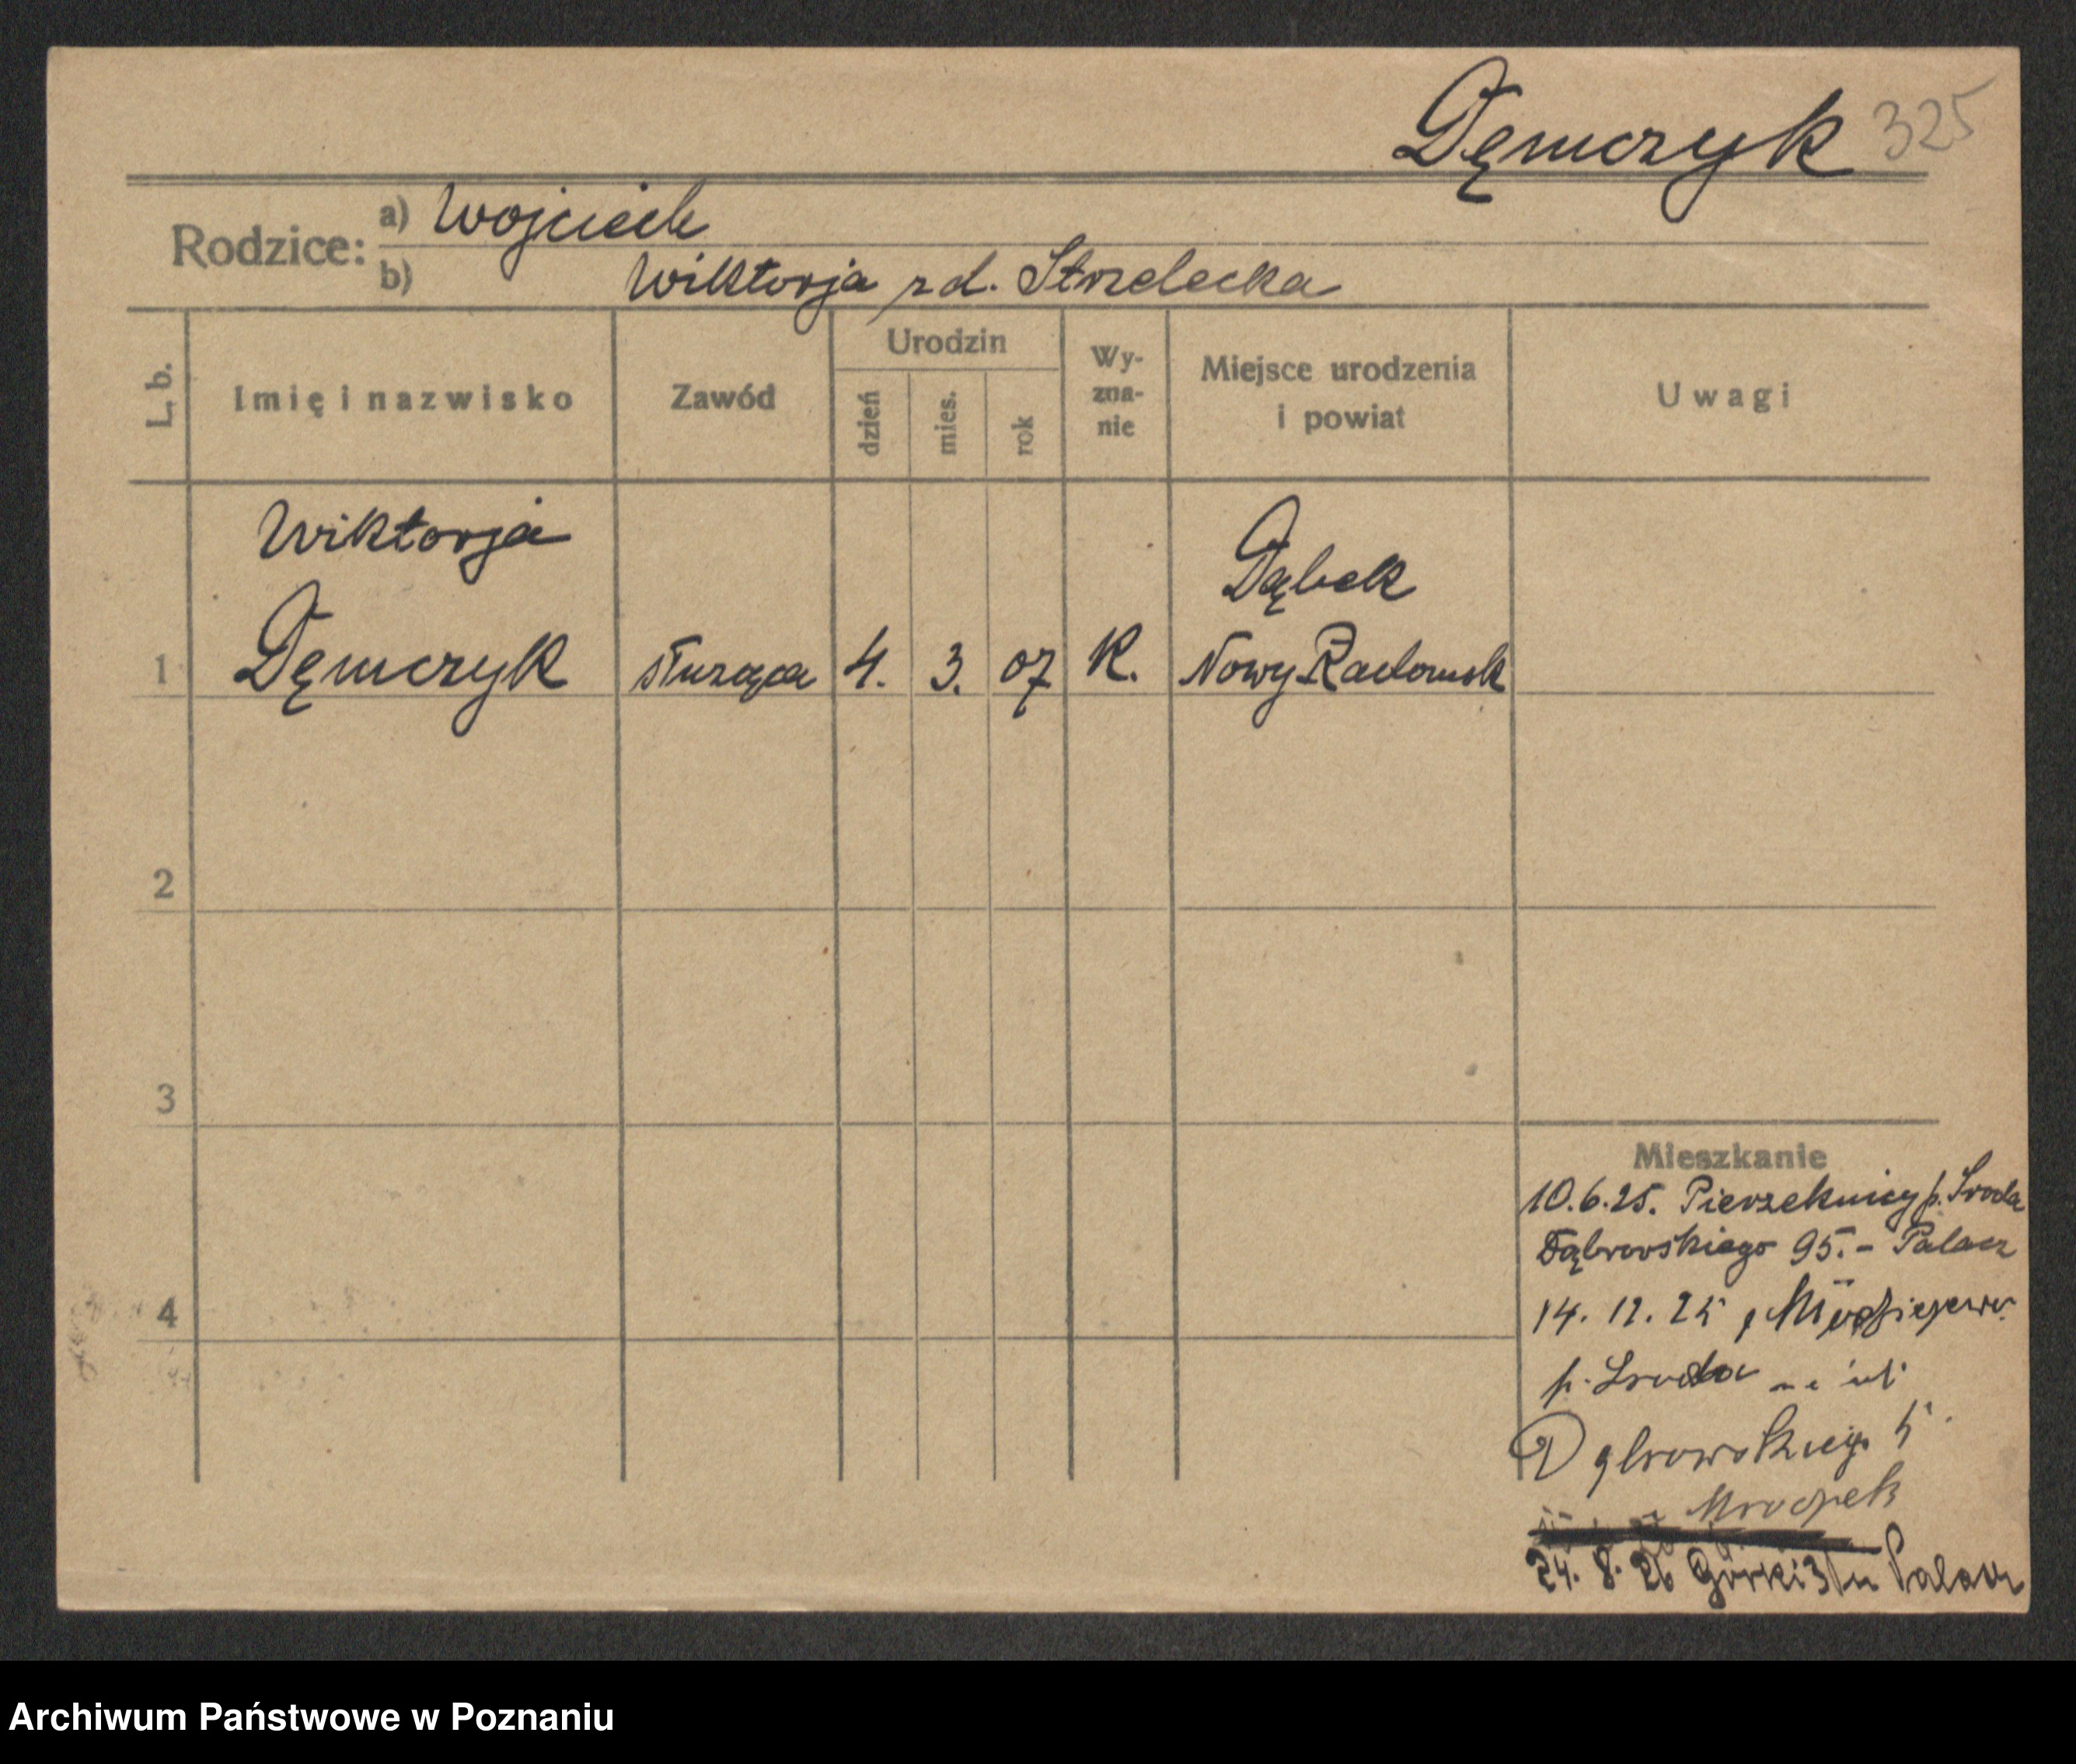 Dęmczyk 325
Rodzice: a) Wojciech
b) Wiktorja zd. Strzelecka
L. b.
Imię i nazwisko
Zawód
Urodzin
dzień
mies.
rok
Wy-
zna-
nie
Miejsce urodzenia
i powiat
Uwagi
Wiktorja Dąbek
1 Dęmczyk służąca 4. 3. 07 K. Nowy Radomsk
2
3
4
Mieszkanie
10.6.25. Pierzchnicy p. Sroda
Dąbrowskiego 95.- Palacz
14. 12. 25
p. Sroda
Dąbrowskiego 5
Mroczek
24. 8. 26 Górki 3 Palacz
Archiwum Państwowe w Poznaniu